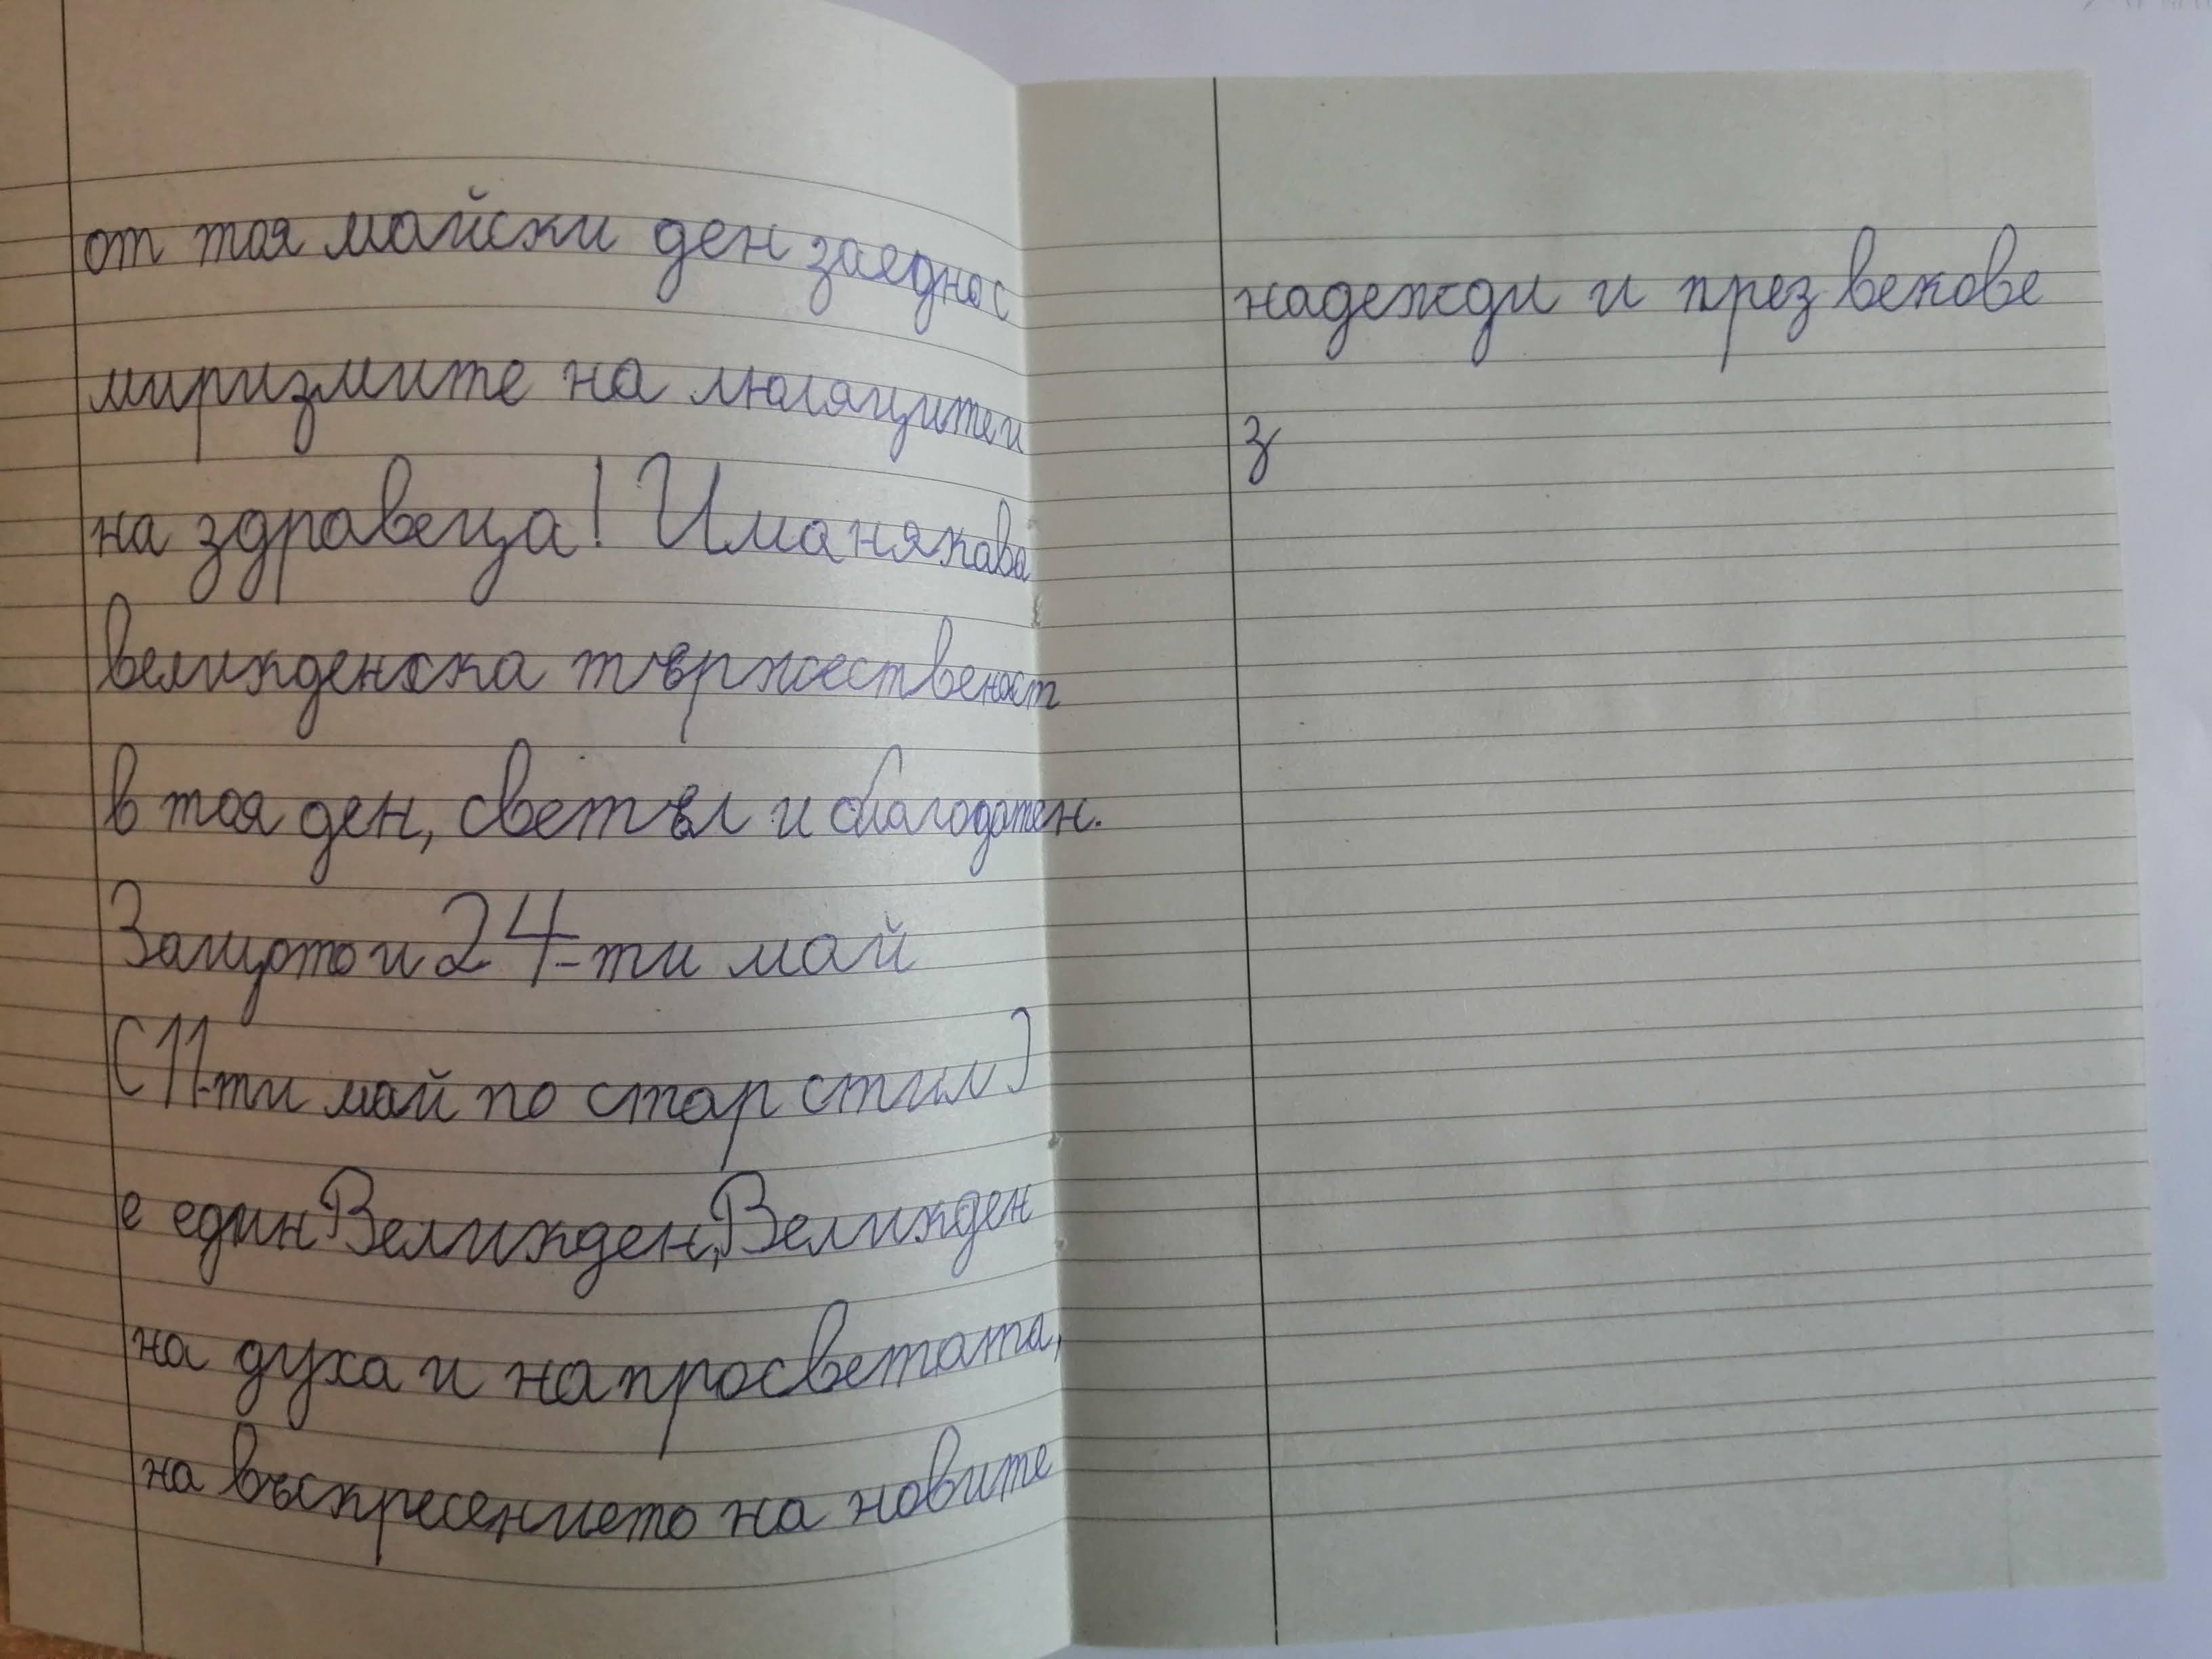 от тоя майски ден заедно с
миризмите на люляците и
на здравеца! Има някаква
великденска тържественост
в тоя ден, светъл и благодатен.
Защото и 24-ти май
(11-ти май по стар стил)
е един Великден, Великден
на духа и на просветата,
на въскресението на новите
надежди и през векове
з